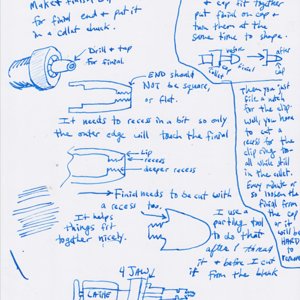 for finial end & put it
in a collet chuck.
Drill & tap
for finial
END should
NOT be square,
or flat.
It needs to recess in a bit so only
the outer edge will touch the finial
lip
recess
deeper recess
Finial needs to be cut with
a recess too.
It helps
things fit
together nicely.
I use a
parting tool
to do that
after I thread
it & before I cut
it from the blank
4 JAW
LATHE
& cap fit together
put finial on cap &
turn them at the
same time to shape.
collet
finial
cap
Then you just
file a notch
for the
clip.
have
to cut a
recess for the
clip ring too-
all while still
in the collet.
so loosen the
finial from
the cap
or it
will be
HARD
to
remove